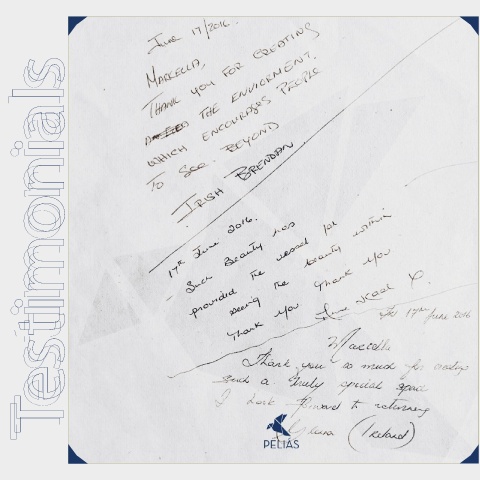 Testimonials
June 17/2016.
MARCELLA,
THANK YOU FOR CREATING
THE ENVIORMENT.
WHICH ENCOURAGES PEOPLE
TO SEE BEYOND
IRISH BRENDAN
17th June 2016.
- Such Beauty has
provided the vessel for
seeing the beauty within
Thank you Thank you
Love X.
Fri 17th June 2016
Thank you so much for
such a truly special space
I look forward to returning
(Ireland)
PELIAS